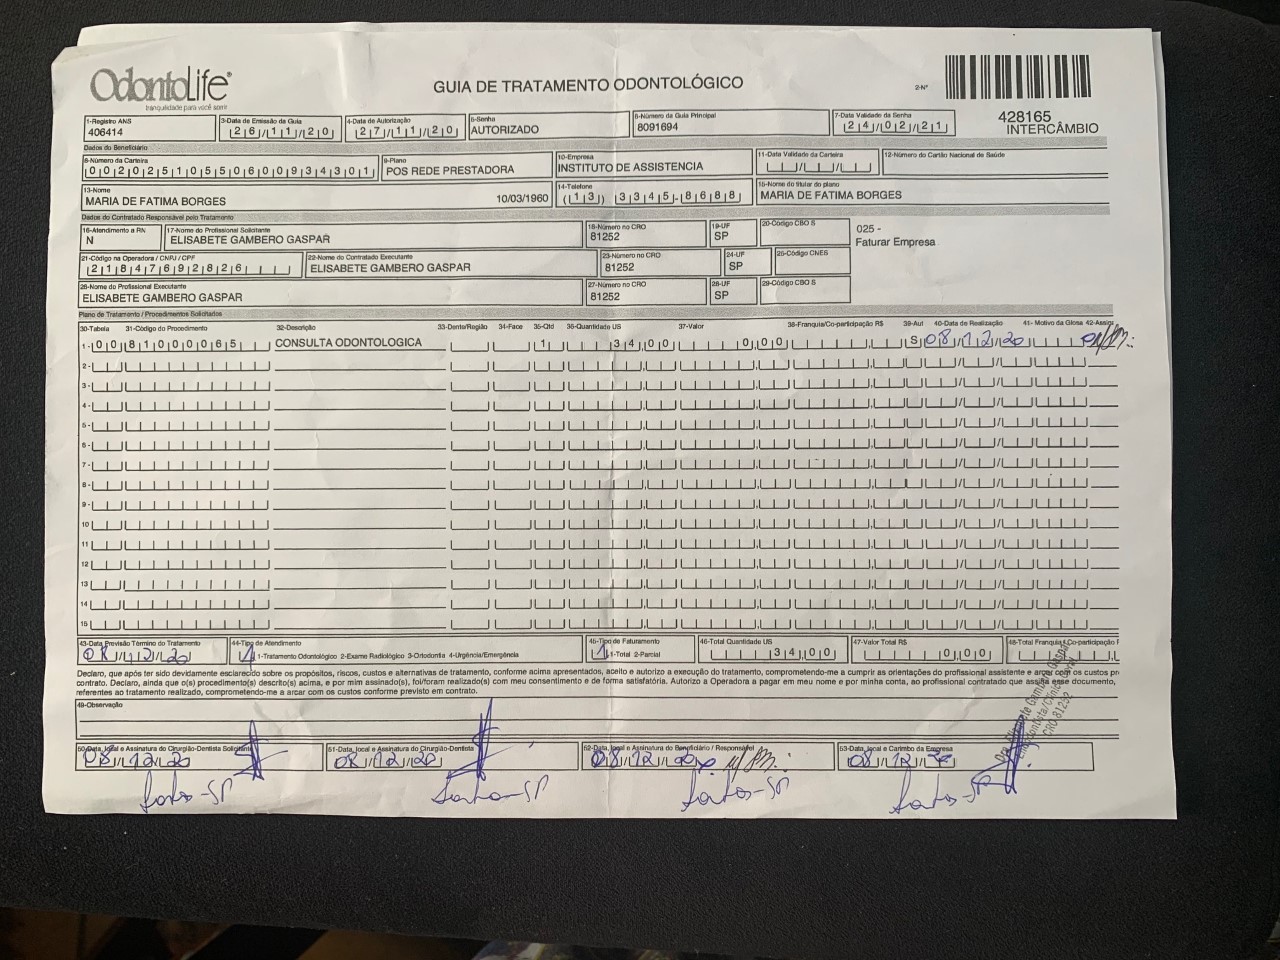 OdontoLife®
tranquilidade para você sorrir
GUIA DE TRATAMENTO ODONTOLÓGICO
2-Nº
428165
INTERCÂMBIO
1-Registro ANS
406414
3-Data de Emissão da Guia
26/11/20
4-Data de Autorização
27/11/20
5-Senha
AUTORIZADO
6-Número da Guia Principal
8091694
7-Data Validade da Senha
24/02/21
Dados do Beneficiário
8-Número da Carteira
00202510550600934301
9-Plano
POS REDE PRESTADORA
10-Empresa
INSTITUTO DE ASSISTENCIA
11-Data Validade da Carteira
12-Número do Cartão Nacional de Saúde
13-Nome
MARIA DE FATIMA BORGES 10/03/1960
14-Telefone
(13) 3345-8688
15-Nome do titular do plano
MARIA DE FATIMA BORGES
Dados do Contratado Responsável pelo Tratamento
16-Atendimento a RN
N
17-Nome do Profissional Solicitante
ELISABETE GAMBERO GASPAR
18-Número no CRO
81252
19-UF
SP
20-Código CBO S
025 -
Faturar Empresa
21-Código na Operadora / CNPJ / CPF
21847692826
22-Nome do Contratado Executante
ELISABETE GAMBERO GASPAR
23-Número no CRO
81252
24-UF
SP
25-Código CNES
26-Nome do Profissional Executante
ELISABETE GAMBERO GASPAR
27-Número no CRO
81252
28-UF
SP
29-Código CBO S
Plano de Tratamento / Procedimentos Solicitados
30-Tabela 31-Código do Procedimento 32-Descrição 33-Dente/Região 34-Face 35-Qtd 36-Quantidade US 37-Valor 38-Franquia/Co-participação R$ 39-Aut 40-Data de Realização 41- Motivo da Glosa 42-Assin
1- 00 81000065 CONSULTA ODONTOLOGICA 1 34,00 0,00 S 08/12/20
2-
3-
4-
5-
6-
7-
8-
9-
10
11
12
13
14
15
43-Data Previsão Término do Tratamento
08/12/20
44-Tipo de Atendimento
1-Tratamento Odontológico 2-Exame Radiológico 3-Ortodontia 4-Urgência/Emergência
45-Tipo de Faturamento
1 1-Total 2-Parcial
46-Total Quantidade US
34,00
47-Valor Total R$
0,00
48-Total Franquia / Co-participação
Declaro, que após ter sido devidamente esclarecido sobre os propósitos, riscos, custos e alternativas de tratamento, conforme acima apresentados, aceito e autorizo a execução do tratamento, comprometendo-me a cumprir as orientações do profissional assistente e arcar com os custos pr
contrato. Declaro, ainda que o(s) procedimento(s) descrito(s) acima, e por mim assinado(s), foi/foram realizado(s) com meu consentimento e de forma satisfatória. Autorizo a Operadora a pagar em meu nome e por minha conta, ao profissional contratado que assina esse documento,
referentes ao tratamento realizado, comprometendo-me a arcar com os custos conforme previsto em contrato.
49-Observação
50-Data, local e Assinatura do Cirurgião-Dentista Solicitante
08/12/20
51-Data, local e Assinatura do Cirurgião-Dentista
08/12/20
52-Data, local e Assinatura do Beneficiário / Responsável
08/12/20
53-Data, local e Carimbo da Empresa
08/12/20
Santos-SP
Santos-SP
Santos-SP
Santos-SP
CRO 81252